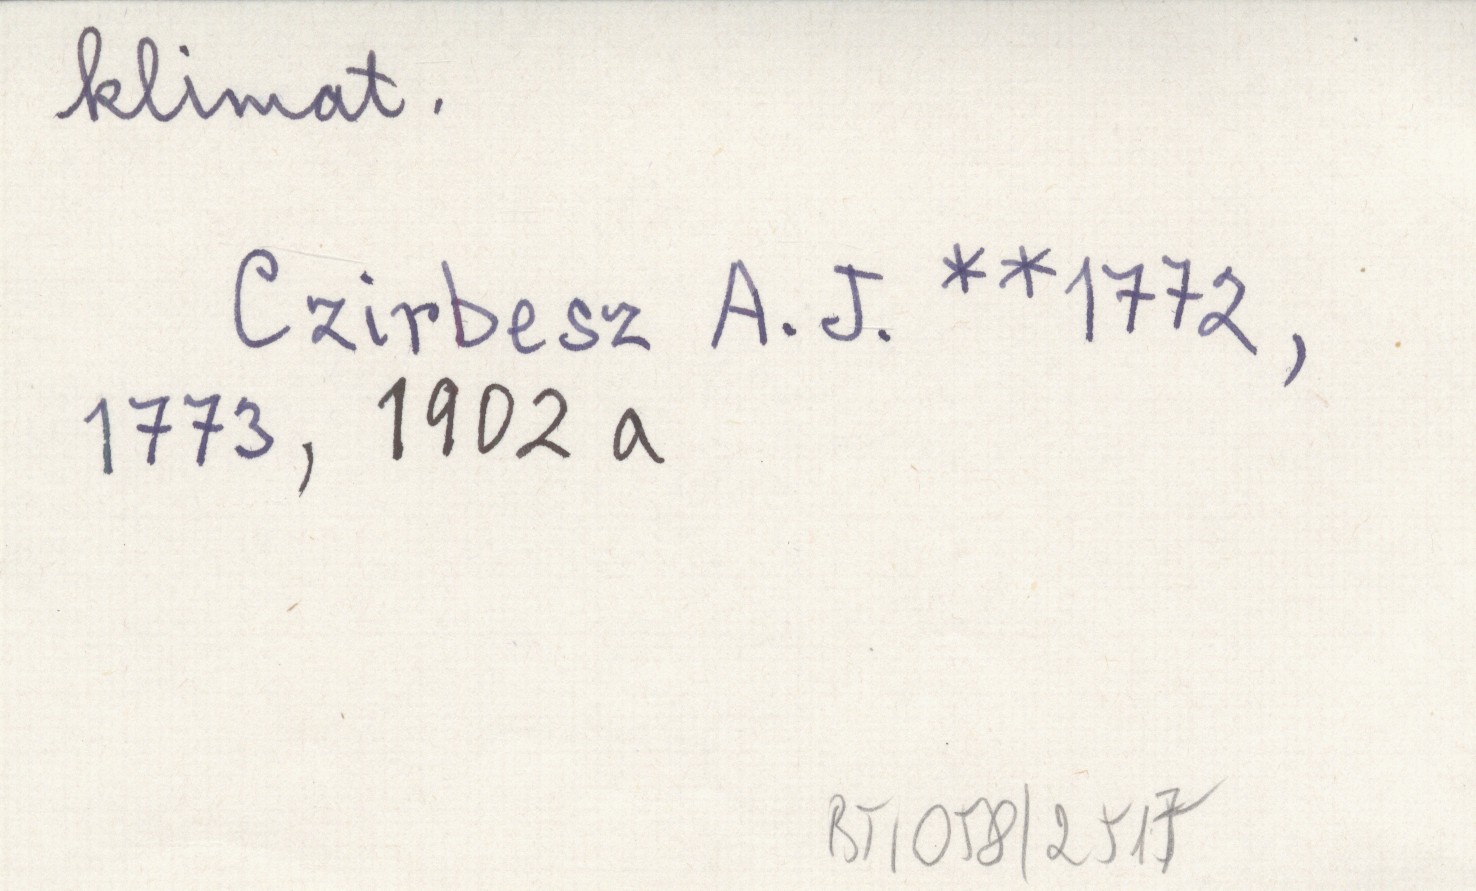 klimat.
Czirbesz A. J. **1772,
1773, 1902 a
BT/058/2517